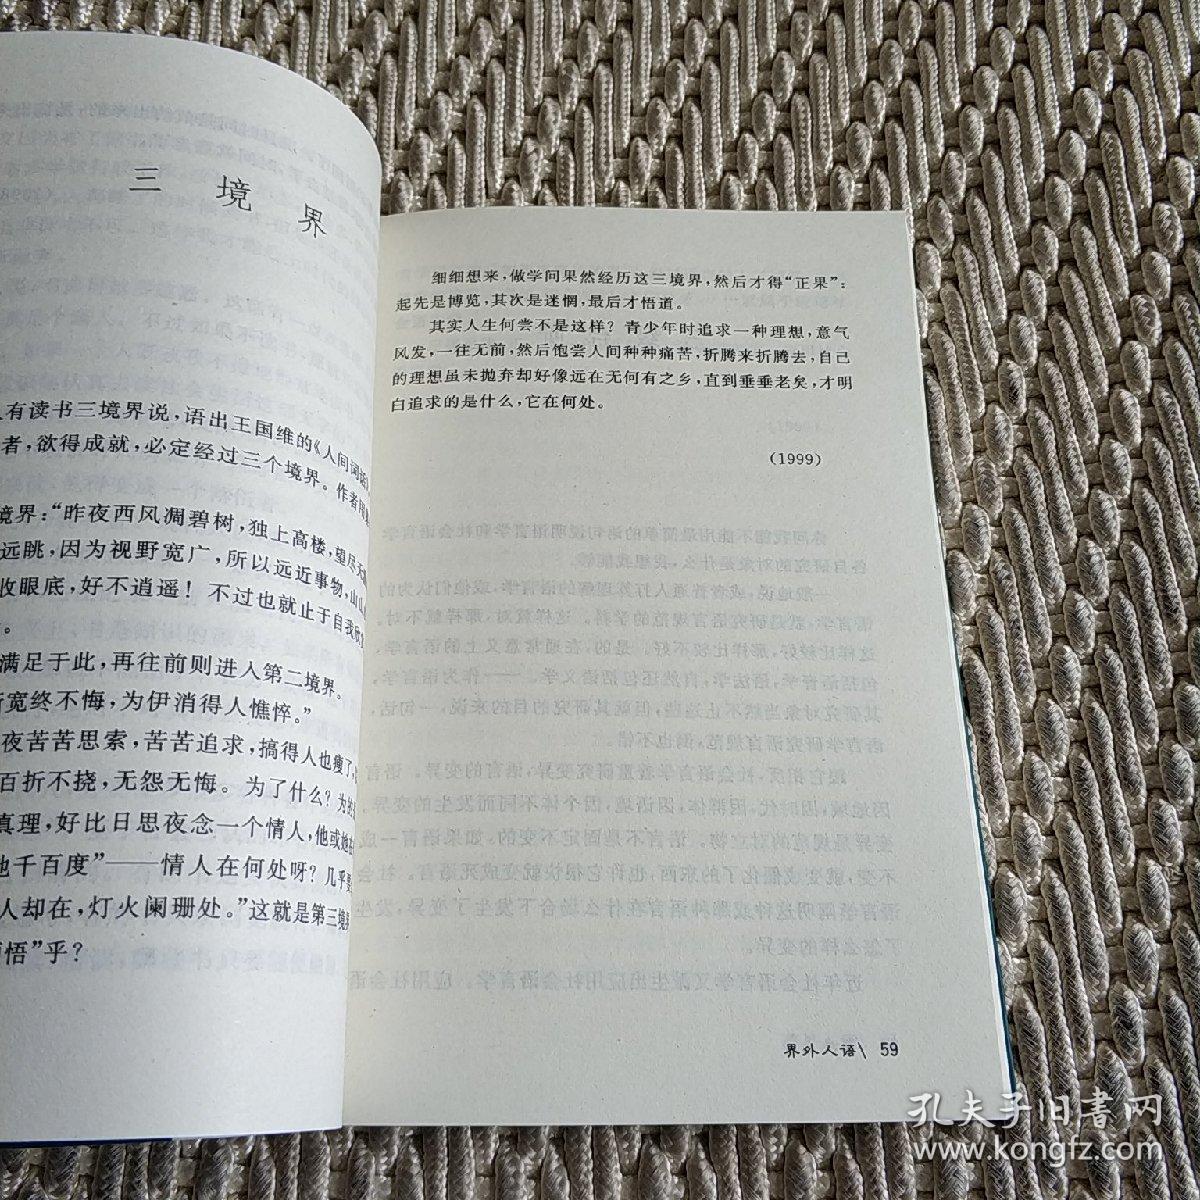 三 境 界
有读书三境界说，语出王国维的《人间词话
者，欲得成就，必定经过三个境界。作者用
境界：“昨夜西风凋碧树，独上高楼，望尽天
远眺，因为视野宽广，所以远近事物，山
收眼底，好不逍遥！不过也就止于自我欣
。
满足于此，再往前则进入第二境界。
宽终不悔，为伊消得人憔悴。”
夜苦苦思索，苦苦追求，搞得人也瘦了
百折不挠，无怨无悔。为了什么？为
真理，好比日思夜念一个情人，他或她
他千百度”——情人在何处呀？几乎
人却在，灯火阑珊处。”这就是第三境
悟”乎？
细细想来，做学问果然经历这三境界，然后才得“正果”：
起先是博览，其次是迷惘，最后才悟道。
其实人生何尝不是这样？青少年时追求一种理想，意气
风发，一往无前，然后饱尝人间种种痛苦，折腾来折腾去，自己
的理想虽未抛弃却好像远在无何有之乡，直到垂垂老矣，才明
白追求的是什么，它在何处。
(1999)
界外人语\ 59
孔夫子旧书网
www.kongfz.com